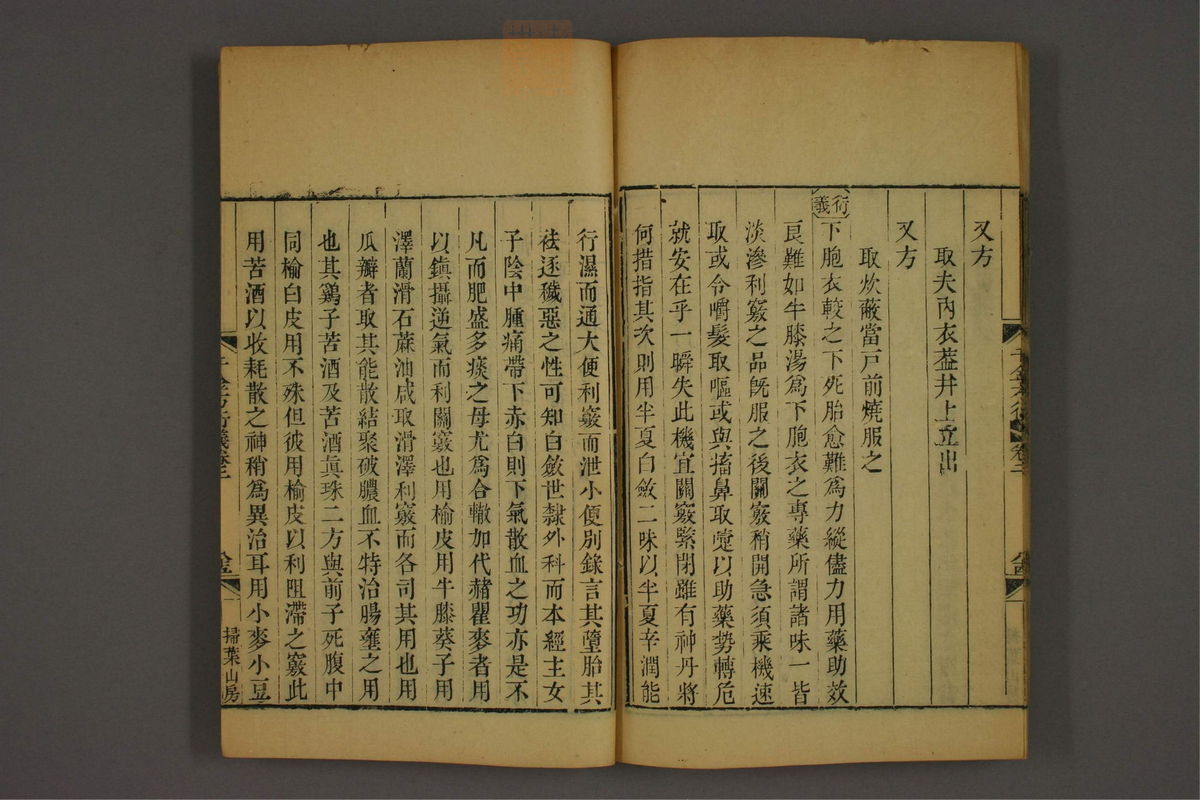 又方
取夫內衣葢井上立出
又方
取炊蔽當戸前燒服之
衍義
下胞衣較之下死胎愈難為力縱儘力用藥助效
艮難如牛膝湯為下胞衣之專藥所謂諸味一皆
淡滲利竅之品旣服之後關竅稍開急須乘機速
取或令嚼髮取嘔或與搐鼻取嚏以助藥勢轉危
就安在乎一瞬失此機宜關竅緊閉雖有神丹將
何措指其次則用半夏白斂二味以半夏辛潤能
行濕而通大便利竅而泄小便別錄言其墮胎其
祛逐穢惡之性可知白斂世隸外科而本經主女
子陰中腫痛帶下赤白則下氣散血之功亦是不
凡而肥盛多痰之母尤為合轍加代赭瞿麥者用
以鎮攝逆氣而利關竅也用榆皮用牛膝葵子用
澤蘭滑石蔴油咸取滑澤利竅而各司其用也用
瓜瓣者取其能散結聚破膿血不特治腸癰之用
也其鷄子苦酒及苦酒眞珠二方與前子死腹中
同榆白皮用不殊但彼用榆皮以利阻滯之竅此
用苦酒以收耗散之神稍為異治耳用小麥小豆
千金方衍義卷二
掃葉山房